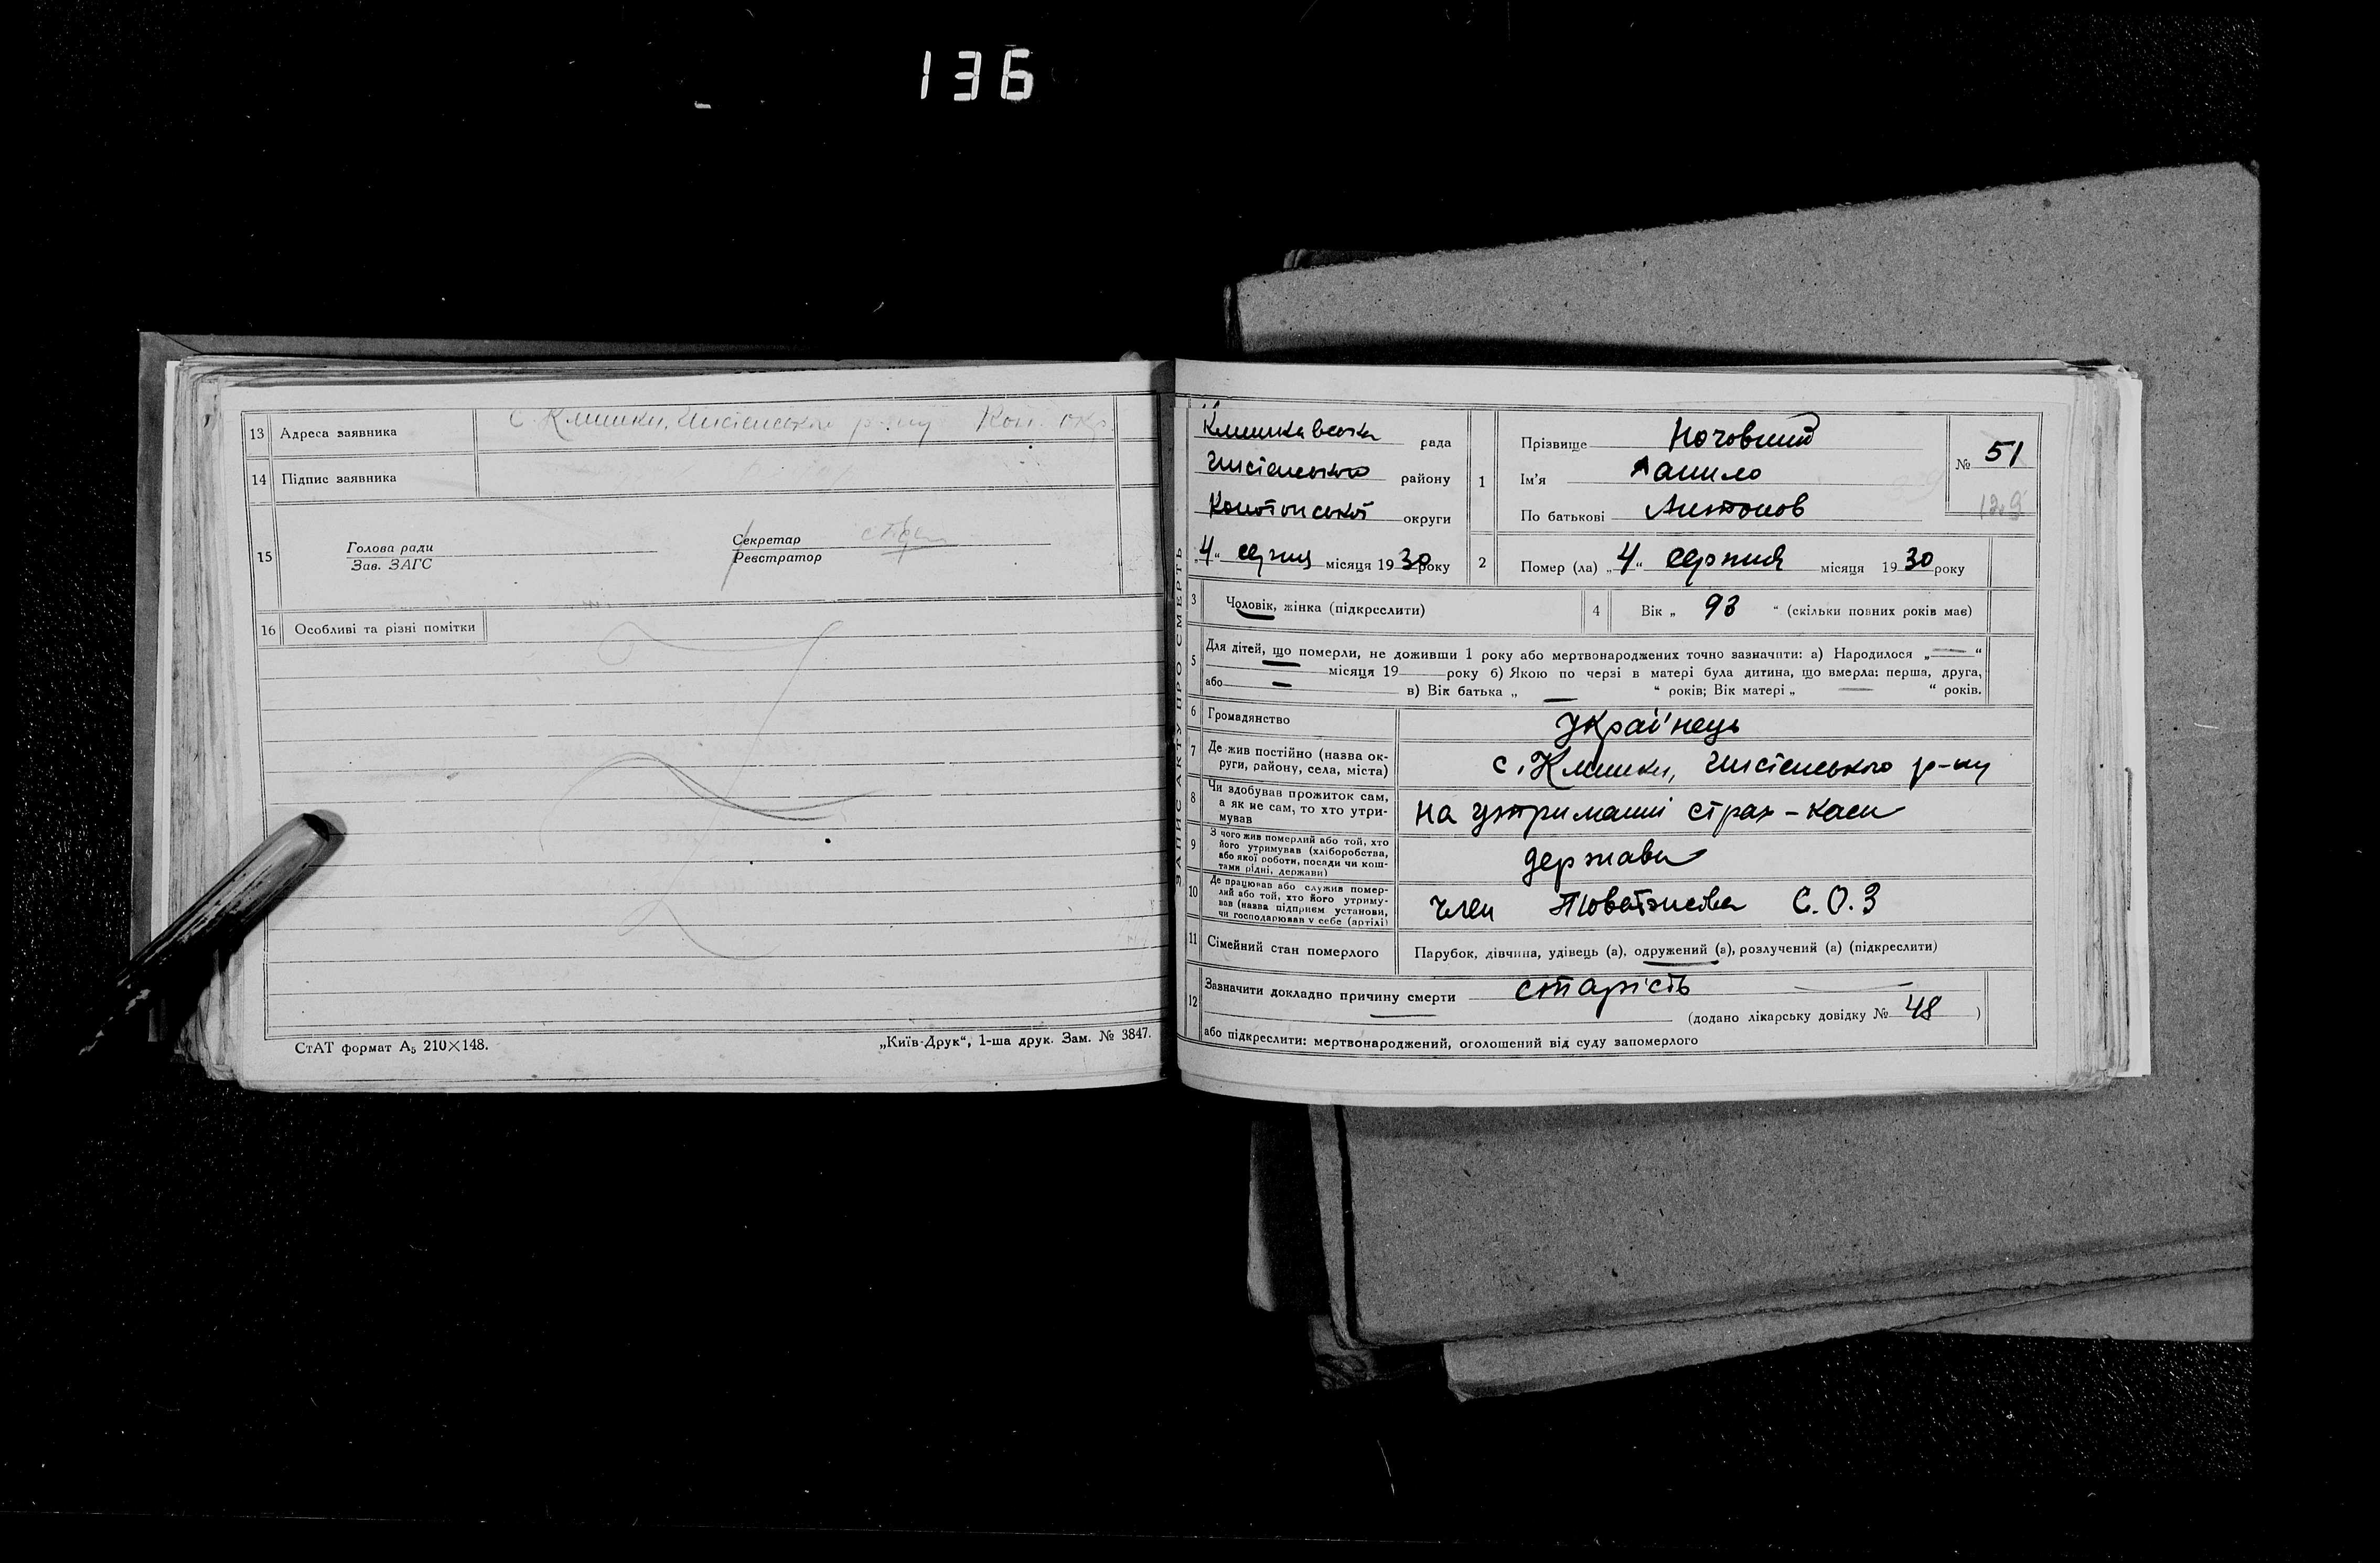 136
13 Адреса заявника с. Клишки, Шосієнського р-ну Кон. окр.
14 Підпис заявника
15 Голова ради Секретар
Зав. ЗАГС Реєстратор
16 Особливі та різні помітки
СтАТ формат А₅ 210×148. „Київ-Друк“, 1-ша друк. Зам. № 3847.
ЗАПИС АКТУ ПРО СМЕРТЬ
рада
району
Конотопської округи
„4“ серпня місяця 1930 року
1 Прізвище
Ім'я Данило
По батькові Антонов
№ 51
2 Помер (ла) „4“ серпня місяця 1930 року
3 Чоловік, жінка (підкреслити) 4 Вік „ 93 “ (скільки повних років має)
5 Для дітей, що померли, не доживши 1 року або мертвонароджених точно зазначити: а) Народилося „—“
місяця 19 року б) Якою по черзі в матері була дитина, що вмерла: перша, друга,
або — в) Вік батька „ — “ років; Вік матері „ — “ років.
6 Громадянство Українець
7 Де жив постійно (назва ок-
руги, району, села, міста) с. Клишки, р-ну
8 Чи здобував прожиток сам,
а як не сам, то хто утри-
мував на утриманні страх-каси
9 З чого жив померлий або той, хто
його утримував (хліборобства,
або якої роботи, посади чи кош-
тами рідні, держави) держави
10 Де працював або служив помер-
лий або той, хто його утриму-
вав (назва підприєм установи,
чи господарював у себе (артілі) член С.О.З
11 Сімейний стан померлого Парубок, дівчина, удівець (а), одружений (а), розлучений (а) (підкреслити)
12 Зазначити докладно причину смерти старість
(додано лікарську довідку № 48 )
або підкреслити: мертвонароджений, оголошений від суду запомерлого